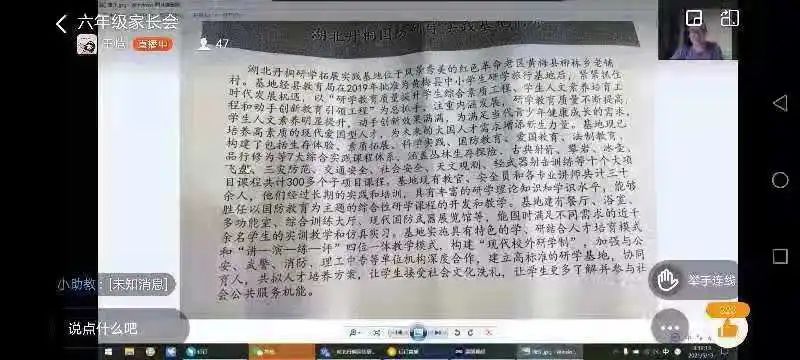 六年级家长会
直播中
47
湖北丹桐国防研学实践基地
湖北丹桐研学拓展实践基地位于风景秀美的红色革命老区黄梅县柳林乡老铺
村。基地经县教育局在2019年批准为黄梅县中小学生研学旅行基地后，紧紧抓住
时代发展机遇，以“研学教育质量提升学生综合素质工程、学生人文素养培育工
程和动手创新教育引领工程”为总抓手，注重内涵发展，研学教育质量不断提高，
学生人文素养明显提升，动手创新效果满满，为满足当代青少年健康成长的需求，
培养高素质的现代爱国型人才，为未来的大国人才需求增添新生力量。基地现已
构建了包括生存体验、素质拓展、科学实践、国防教育、爱国教育、法制教育、
品行修为等7大综合实践课程体系，涵盖丛林生存探险、古典射箭、攀岩、冰壶、
飞盘、三防范、交通安全、社会安全、天文观测、轻武器射击训练等十个大项
目课程共计300多个子项目课程。基地现有教官、安全员和各专业讲师共计三十
余人，他们经过长期的实践和培训，具有丰富的研学理论知识和学识水平，能够
胜任以国防教育为主题的综合性研学课程的开发和教学。基地建有餐厅、浴室、
多功能室、综合训练大厅、现代国防武器展览馆等，能同时满足不同需求的近千
余名学生的实训教学和仿真实习。基地实施具有特色的学、研结合人才培育模式
和“讲—演—练—评”四位一体教学模式，构建“现代校外研学制”，加强与公
安、武警、消防、理工中专等单位机构深度合作，建立高标准的研学基地，协同
育人，共拟人才培养方案，让学生接受社会文化洗礼，让学生更多了解并参与社
会公共服务机能。
小助教：[未知消息]
举手连线
说点什么吧